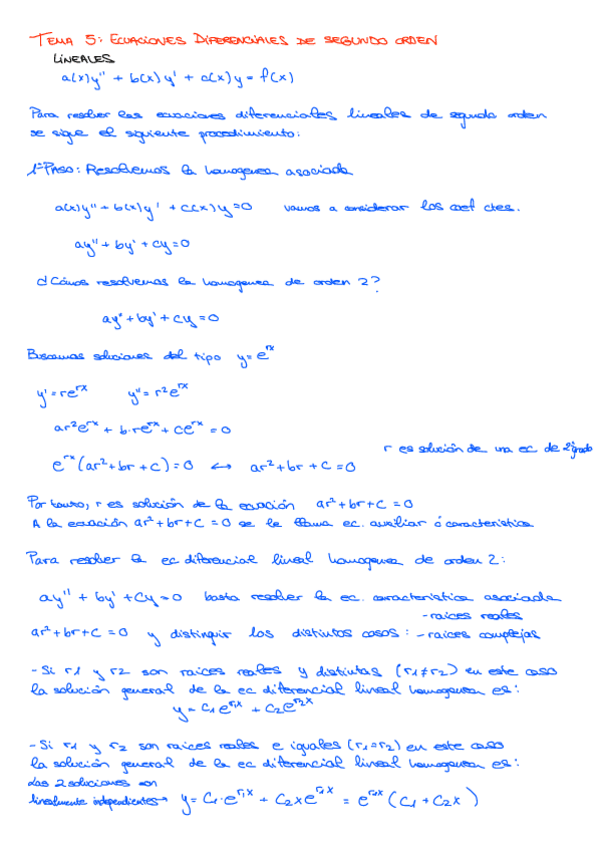 TEMA 5: ECUACIONES DIFERENCIALES DE SEGUNDO ORDEN
LINEALES
a(x)y'' + b(x)y' + c(x)y = f(x)
Para resolver las ecuaciones diferenciales lineales de segundo orden
se sigue el siguiente procedimiento:
1º PASO: Resolvemos la homogenea asociada
a(x)y'' + b(x)y' + c(x)y = 0 vamos a considerar los coef ctes.
ay'' + by' + cy = 0
¿Cómo resolvemos la homogenea de orden 2?
ay'' + by' + cy = 0
Buscamos soluciones del tipo y = e^rx
y' = re^rx y'' = r²e^rx
ar²e^rx + b·re^rx + ce^rx = 0
r es solución de una ec de 2º grado
e^rx (ar² + br + c) = 0 ↔ ar² + br + c = 0
Por tanto, r es solución de la ecuación ar² + br + c = 0
A la ecuación ar² + br + c = 0 se le llama ec. auxiliar ó característica
Para resolver la ec diferencial lineal homogenea de orden 2:
ay'' + by' + cy = 0 basta resolver la ec. característica asociada
- raices reales
ar² + br + c = 0 y distinguir los distintos casos: - raices complejas
- Si r1 y r2 son raices reales y distintas (r1 ≠ r2) en este caso
la solución general de la ec diferencial lineal homogenea es:
y = C1e^r1x + C2e^r2x
- Si r1 y r2 son raices reales e iguales (r1 = r2) en este caso
la solución general de la ec diferencial lineal homogenea es:
Las 2 soluciones son
linealmente independientes → y = C1·e^r1x + C2xe^r1x = e^r1x (C1 + C2x)